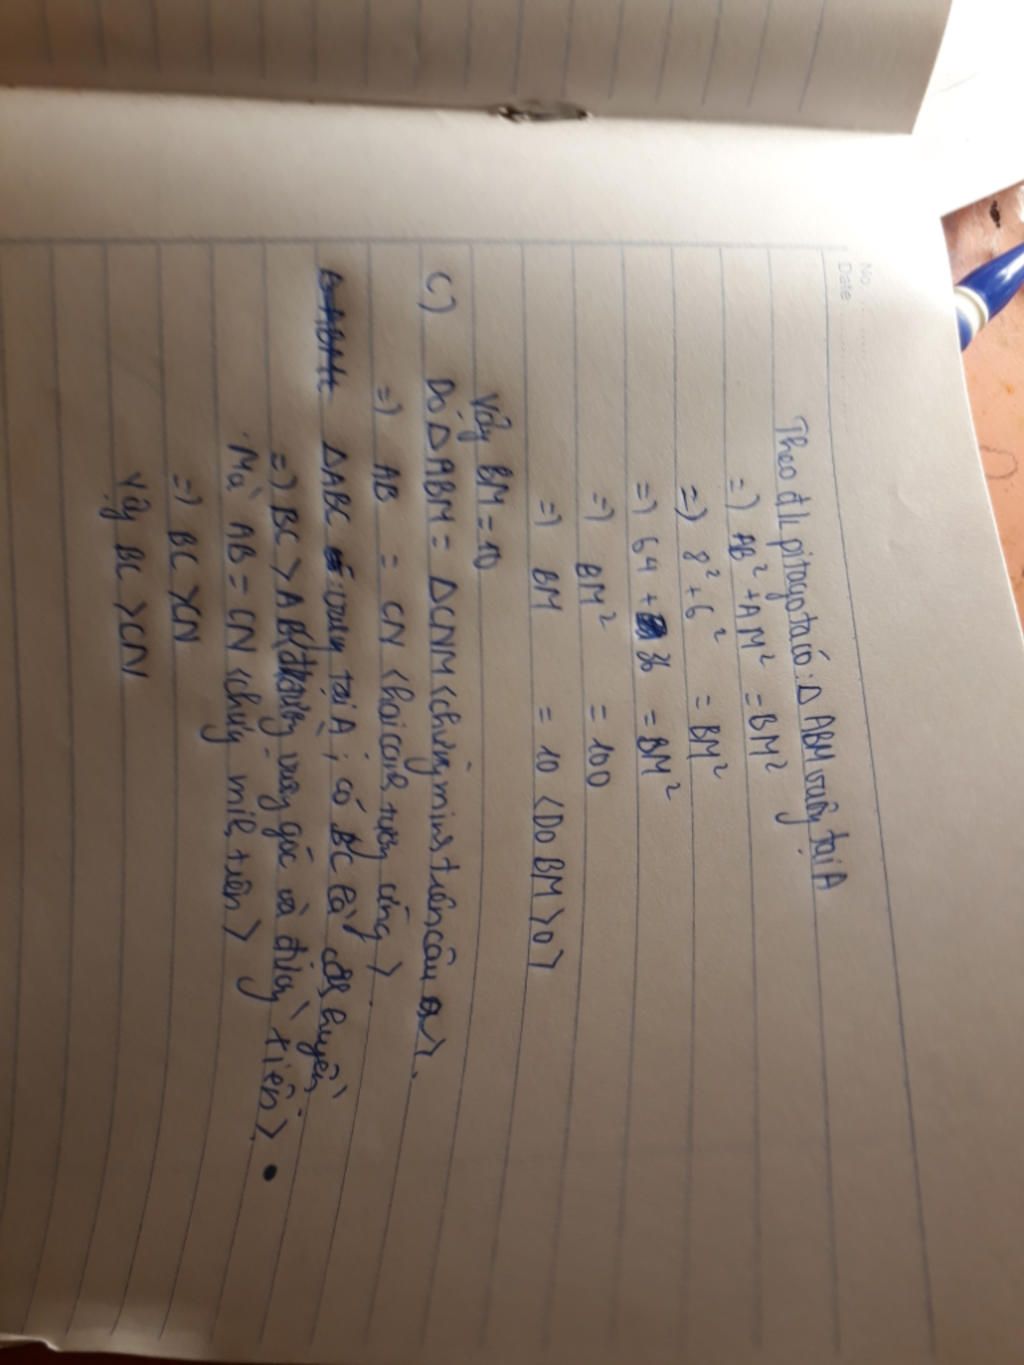 No.
Date
Theo đ/l pitago ta có: Δ ABM vuông tại A
=) AB² + AM² = BM²
=) 8² + 6² = BM²
=) 64 + 36 = BM²
=) BM² = 100
=) BM = 10 <Do BM > 0>
Vậy BM = 10
C) Do Δ ABM = Δ CNM <chứng minh trên câu a>.
=) AB = CN <hai cạnh tương ứng>
Δ ABC vuông tại A; có BC là cạnh huyền
=) BC > AB <đường vuông góc và đường xiên>
Mà AB = CN <chứng minh trên>
=) BC > CN
Vậy BC > CN